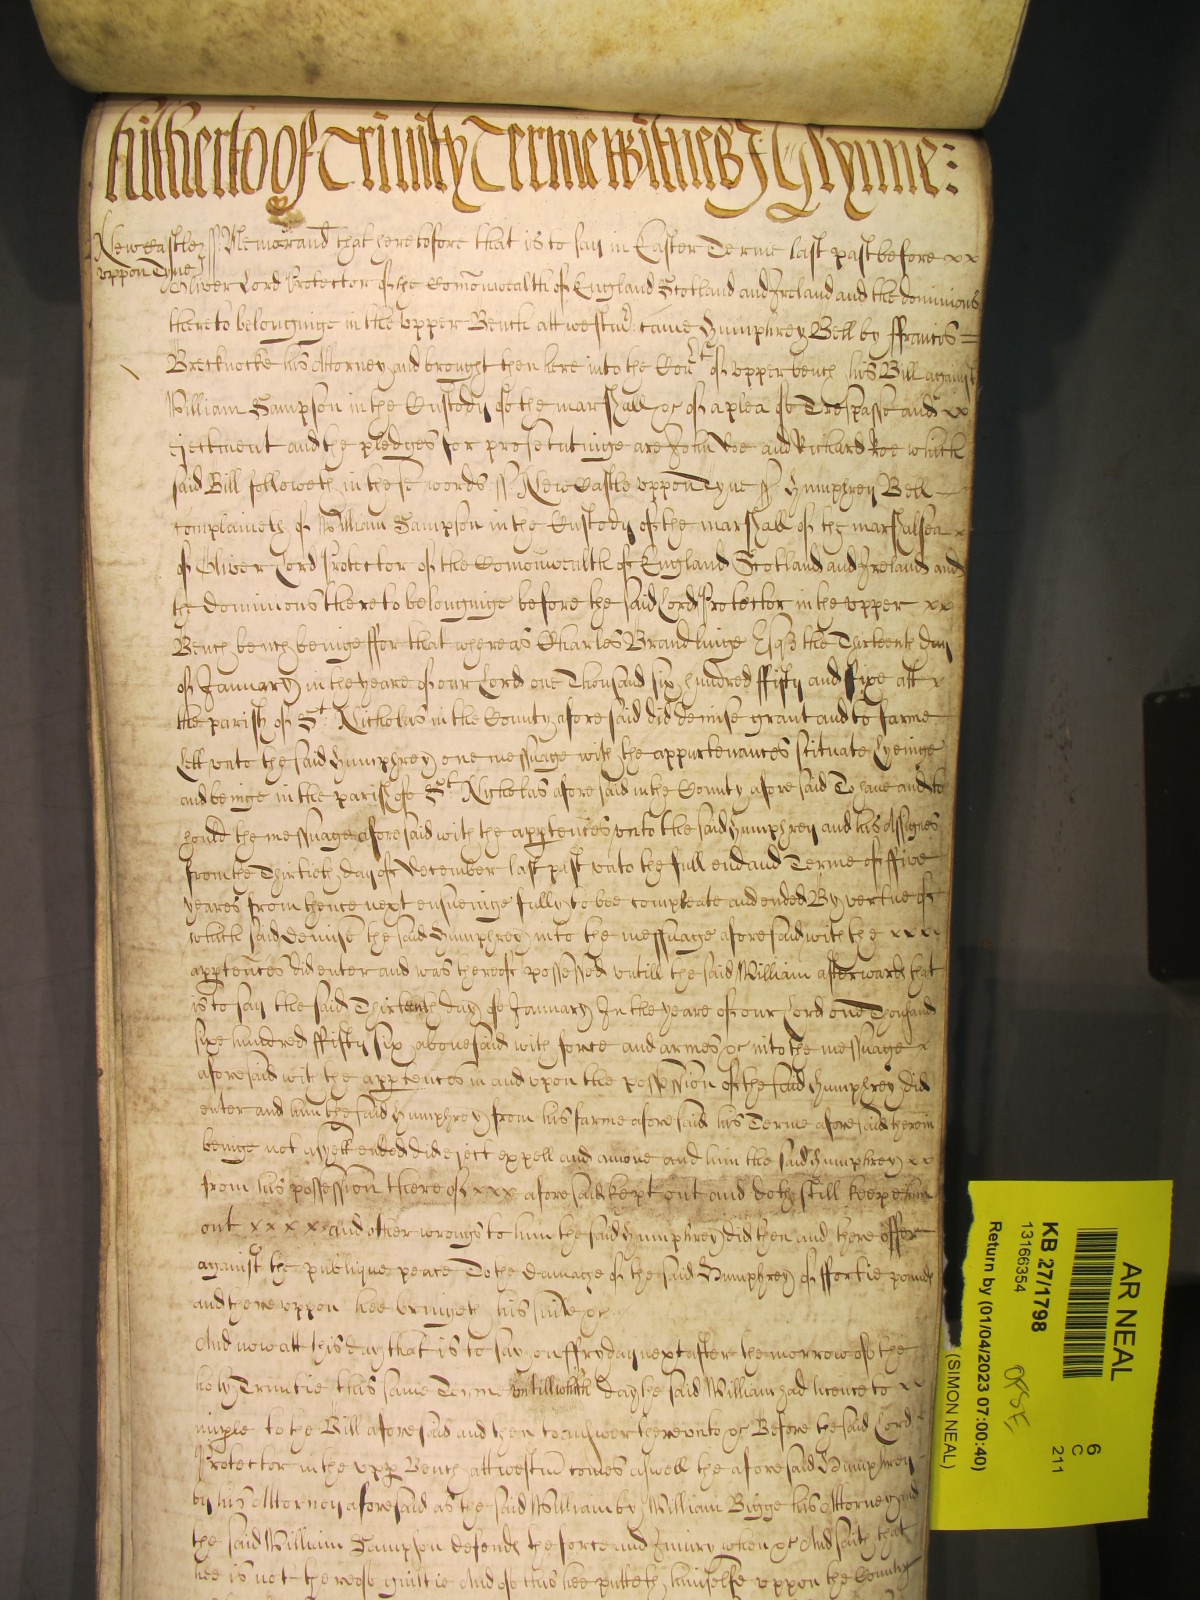 hitherto of Trinity Terme witnes J Glynne:
Newcastle
uppon Tyne
ss Memorand that heretofore that is to say in Easter Terme last past before xx
Oliver Lord Protector of the Comonwealth of England Scotland and Ireland and the dominions
thereto belonginge in the Upper Bench att westmr came Humphrey Bell by ffrancis =
Brecknocke his Attorney and brought then here into the Court of upper bench his Bill against
William Sampson in the Custody of the marshall &c of a plea of Trespasse and xx
ejectment and the pledges for prosecutinge are John Doe and Richard Roe which
said Bill followeth in these words ss Newcastle uppon Tyne ss Humphrey Bell
complaineth of William Sampson in the Custody of the marshall of the marshalsea x
of Oliver Lord Protector of the Comonwealth of England Scotland and Ireland and
the dominions thereto belonginge before the said Lord Protector in the upper xx
Bench beinge ffor that whereas Charles Brandlinge Esqr the Thirteenth day
of January in the yeare of our Lord one Thousand six hundred ffifty and sixe att x
the parish of St Nicholas in the County aforesaid did demise grant and to farme
Lett unto the said Humphrey one messuage with the appurtenances scituate lyeinge
and beinge in the parish of St Nicholas aforesaid in the County aforesaid To have and to
hould the messuage aforesaid with the apptences unto the said Humphrey and his Assignes
from the Thirtieth day of December last past unto the full end and Terme of ffive
yeares from thence next ensueinge fully to bee compleate and ended By vertue of
which said demise the said Humphrey into the messuage aforesaid with the xxxx
apptences did enter and was thereof possessed untill the said William afterwards that
is to say the said Thirteenth day of January In the yeare of our Lord one Thousand
sixe hundred ffifty six abovesaid with force and armes &c into the messuage x
aforesaid wit the apptences in and upon the possession of the said Humphrey did
enter and him the said Humphrey from his farme aforesaid his Terme aforesaid therein
beinge not as yett ended did eject expell and amove and him the said Humphrey xx
from his possession thereof xxx aforesaid kept out and doth still keepe him
out xxxx and other wrongs to him the said Humphrey did then and there offer
against the publique peace To the damage of the said Humphrey of ffortie pounds
and thereuppon hee bringeth his suite &c
And now att this day that is to say on ffryday next after the morrow of the
holy Trinitie this same Terme untill which day the said William had licence to xx
imple to the Bill aforesaid and then to answer thereunto &c Before the said Lord
Protector in the upp Bench att westm comes aswell the aforesaid Humphrey
by his Attorney aforesaid as the said William by William Bigge his Attorney and
the said William Sampson defends the force and Injury when &c And saith that
hee is not thereof guiltie And of this hee putteth himselfe uppon the Country
AR NEAL
KB 27/1798
13166354
Return by (01/04/2023 07:00:40)
(SIMON NEAL)
6
C
211